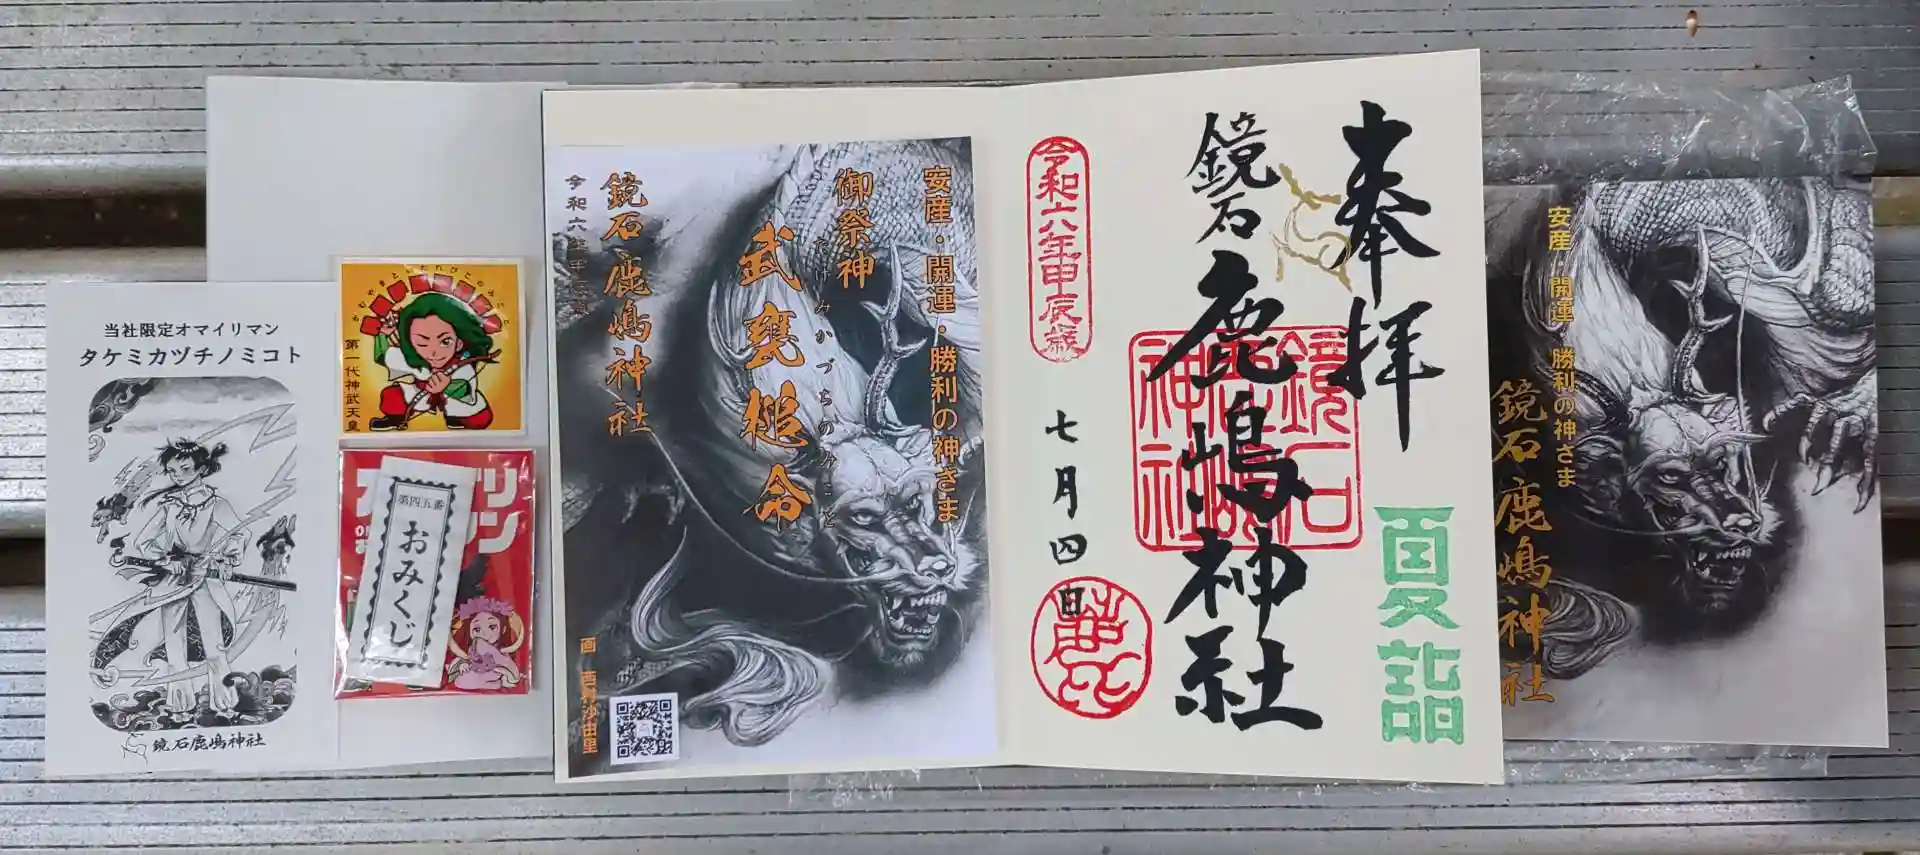 当社限定オマイリマン
タケミカヅチノミコト
鏡石鹿嶋神社
第一代神武天皇
第四五番
おみくじ
安産・開運・勝利の神さま
御祭神
武甕槌命
たけみかづちのみこと
鏡石鹿嶋神社
令和六年甲辰歳
画 西村沙由里
奉拝
夏詣
鏡石鹿嶋神社
鏡石鹿嶋神社
令和六年甲辰歳
七月四日
安産・開運・勝利の神さま
鏡石鹿嶋神社